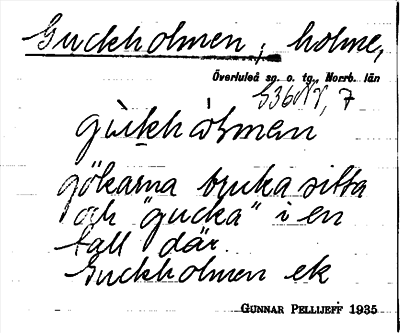 Guckholmen, holme,
Överluleå sg. o. tg., Norrb. län
S36NV, 7
gùckhólmen
gökarna bruka sitta
och "gucka" i en
tall där.
Guckholmen ek
GUNNAR PELLIJEFF 1935